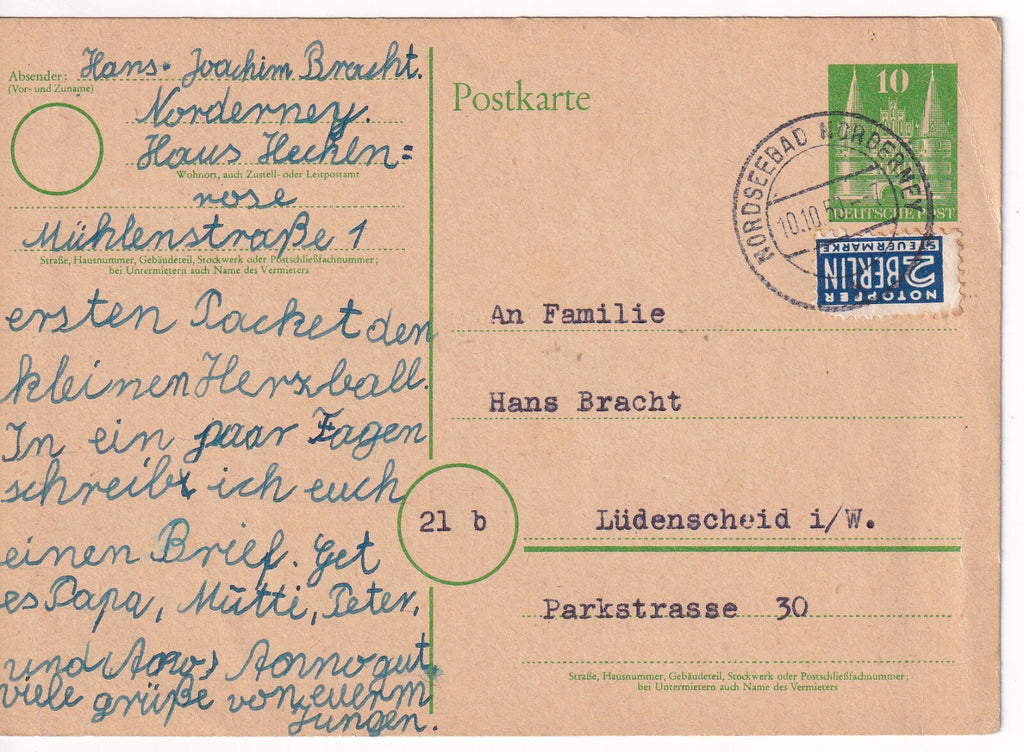 Absender: Hans-Joachim Bracht.
(Vor- und Zuname)
Norderney.
Haus Hecken=
Wohnort, auch Zustell- oder Leitpostamt
rose
Mühlenstraße 1
Straße, Hausnummer, Gebäudeteil, Stockwerk oder Postschließfachnummer;
bei Untermietern auch Name des Vermieters
ersten Packet den
kleinen Herzball.
In ein paar Tagen
schreibt ich euch
einen Brief. Get
es Papa, Mutti, Peter,
und Anno gut,
viele grüße von euerm
Jungen.
Postkarte
10
DEUTSCHE POST
NORDSEEBAD NORDERNEY
10.10.
NOTOPFER
2 BERLIN
STEUERMARKE
An Familie
Hans Bracht
21 b
Lüdenscheid i/W.
Parkstrasse 30
Straße, Hausnummer, Gebäudeteil, Stockwerk oder Postschließfachnummer;
bei Untermietern auch Name des Vermieters